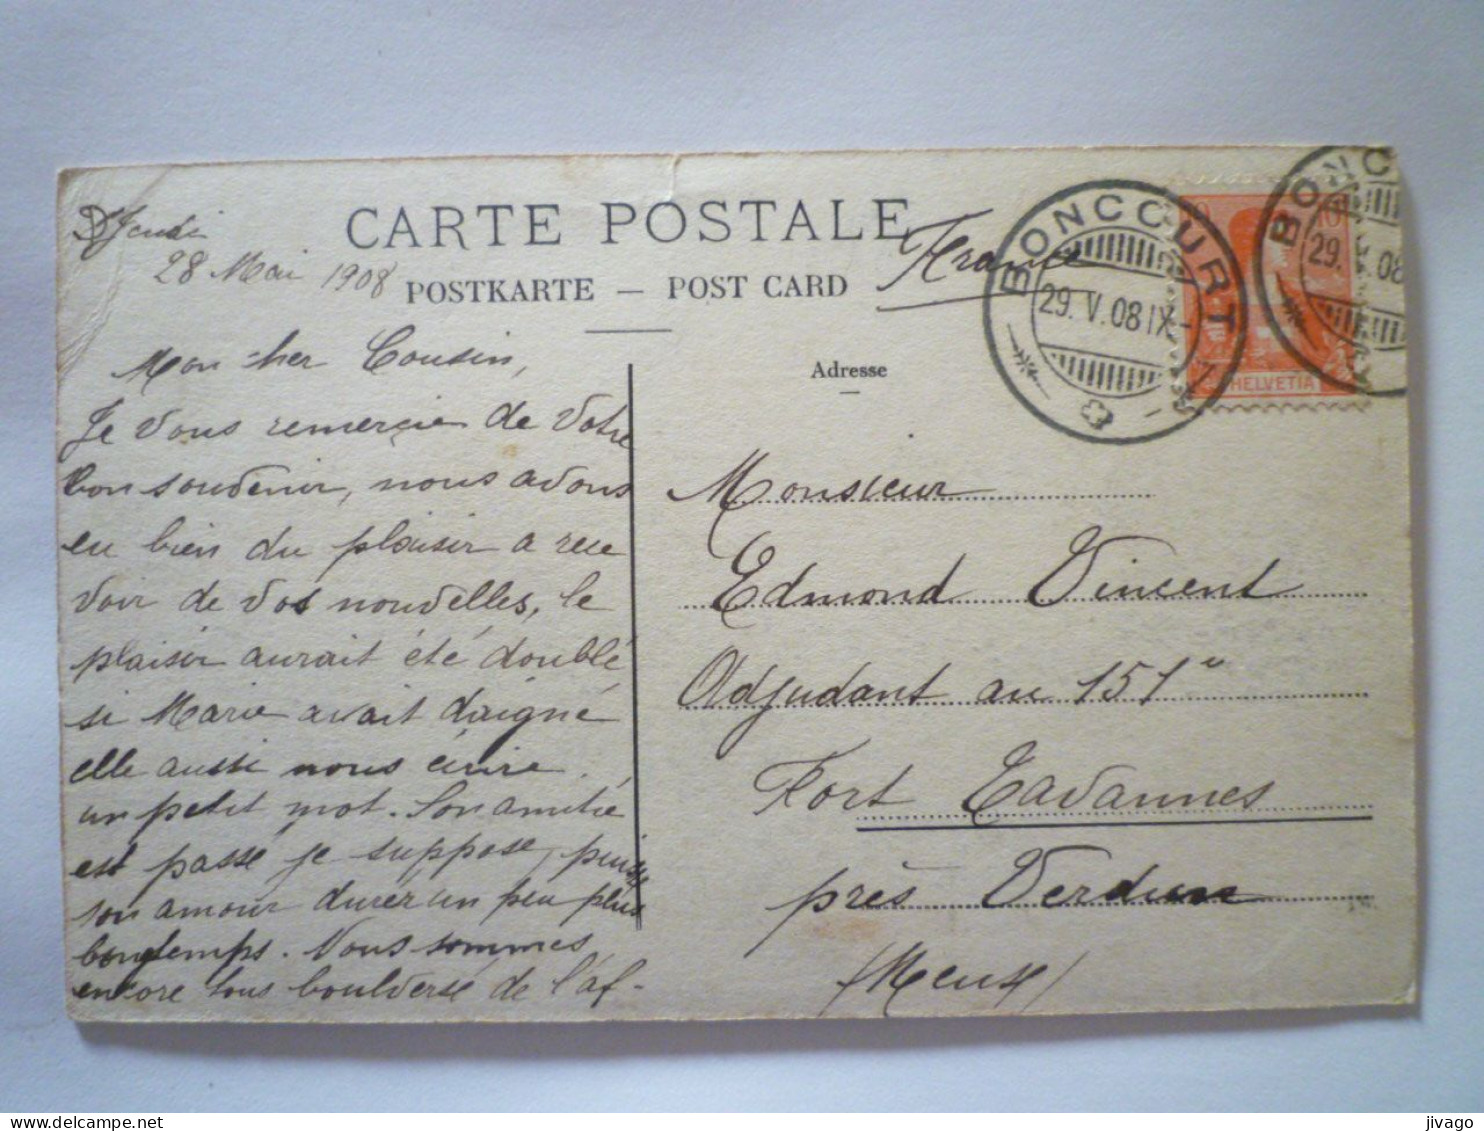 Jeudi
28 Mai 1908
CARTE POSTALE
POSTKARTE — POST CARD
France
BONCOURT
29. V. 08 IX-
BONC
29. 08
10
10
HELVETIA
Adresse
Mon cher Cousin,
Je vous remercie de votre
bon souvenir, nous avons
eu bien du plaisir a rece
voir de vos nouvelles, le
plaisir aurait été doublé
si Marie avait daigné
elle aussi nous écrire
un petit mot. Son amitié
est passé je suppose, puisse
son amour durer un peu plus
longtemps. Nous sommes
encore tous bouldersé de l'af-
Monsieur
Edmond Vincent
Adjudant au 151e
Fort Tavannes
près Verdun
(Meuse)
jivago